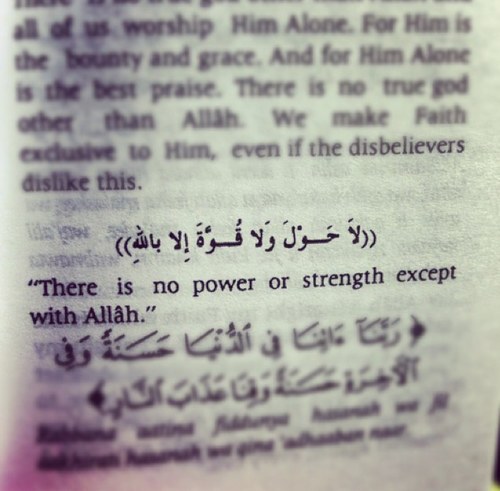 all of us worship Him Alone. For Him is
the bounty and grace. And for Him Alone
is the best praise. There is no true god
other than Allâh. We make Faith
exclusive to Him, even if the disbelievers
dislike this.
((لَا حَـوْلَ وَلا قُـوَّةَ إِلا بِاللهِ))
“There is no power or strength except
with Allâh.”
﴿ رَبَّنَآ ءَاتِنَا فِى ٱلدُّنْيَا حَسَنَةً وَفِى
ٱلْأَخِرَةِ حَسَنَةً وَقِنَا عَذَابَ ٱلنَّارِ ﴾
Rabbana aatina fiddunya hasanah we fil
hasanah we qina 'adhaaban naar